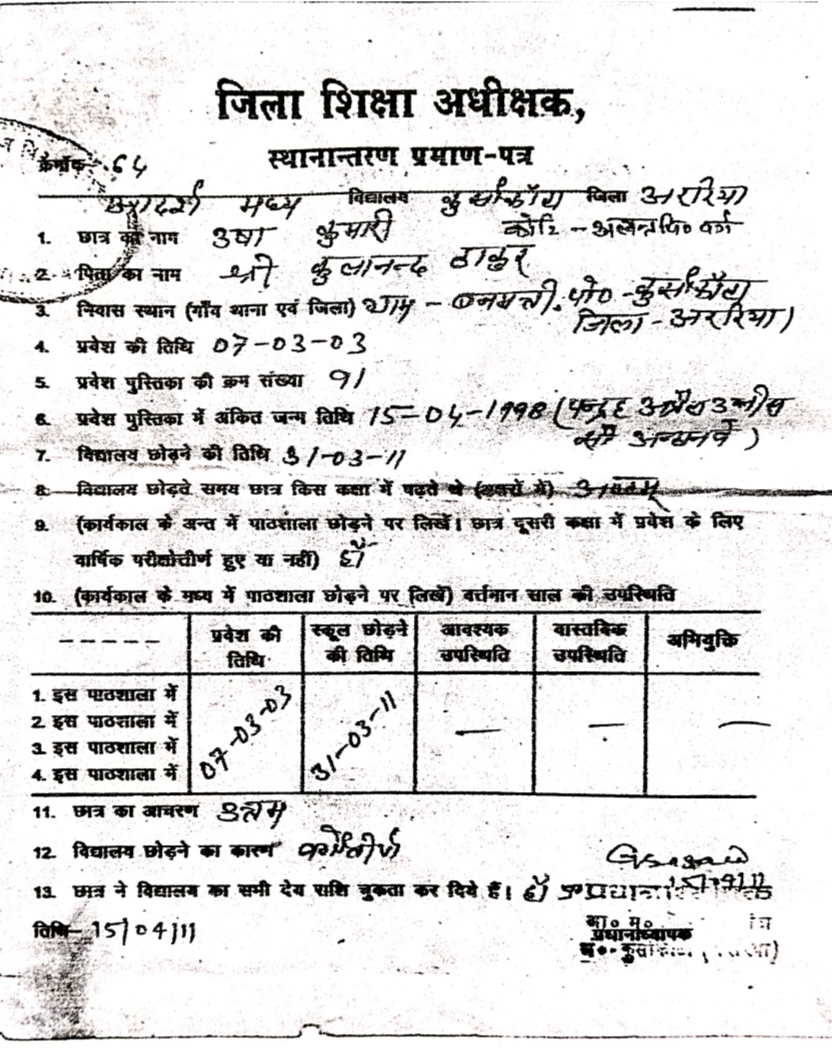 जिला शिक्षा अधीक्षक,
स्थानान्तरण प्रमाण-पत्र
क्रमाँक 64
आदर्श मध्य विद्यालय कुर्साकाँटा जिला अररिया
1. छात्र का नाम उषा कुमारी कोटि -
2. पिता का नाम श्री कुलानन्द ठाकुर
3. निवास स्थान (गाँव थाना एवं जिला) ग्राम - पो० - कुर्साकाँटा
जिला - अररिया)
4. प्रवेश की तिथि 07-03-03
5. प्रवेश पुस्तिका की क्रम संख्या 91
6. प्रवेश पुस्तिका में अंकित जन्म तिथि 15-04-1998 (पन्द्रह अप्रैल उन्नीस
सौ अन्ठानवे)
7. विद्यालय छोड़ने की तिथि 31-03-11
8. विद्यालय छोड़ते समय छात्र किस कक्षा में पढ़ते थे (अक्षरों में) अष्टम्
9. (कार्यकाल के अन्त में पाठशाला छोड़ने पर लिखें। छात्र दूसरी कक्षा में प्रवेश के लिए
वार्षिक परीक्षोत्तीर्ण हुए या नहीं) हाँ
10. (कार्यकाल के मध्य में पाठशाला छोड़ने पर लिखें) वर्त्तमान साल की उपस्थिति
----- प्रवेश की स्कूल छोड़ने आवश्यक वास्तविक अभियुक्ति
तिथि की तिथि उपस्थिति उपस्थिति
1. इस पाठशाला में
2. इस पाठशाला में
3. इस पाठशाला में
4. इस पाठशाला में
07-03-03 31-03-11 — — —
11. छात्र का आचरण उत्तम
12. विद्यालय छोड़ने का कारण वर्गोत्तीर्ण
13. छात्र ने विद्यालय का सभी देय राशि चुकता कर दिये हैं। हाँ
15/04/11
तिथि- 15/04/11
प्रधानाध्यापक